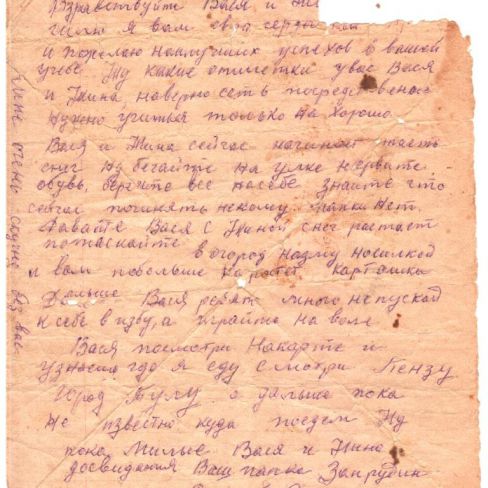 Здравствуйте Вася и
шлю я вам свой сердечный
и пожелаю наилучших успехов в вашей
учебе Ну какие отметки у вас Вася
и Нина наверно есть посредственные
нужно учиться только на хорошо
Вася и Нина сейчас начинает таять
снег Ну бегайте на улке не рвите
обувь, берегите все на себе знайте что
сейчас починять некому папки нет.
давайте Вася с Ниной снег растает
потаскайте в огород назму носилкой
и вам побольше нарастет картошки
Дальше Вася ребят много не пускай
к себе в избу, а играйте на воле
Вася посмотри На карте и
узнаешь где я еду смотри Пензу
город Тулу а дальше пока
Не известно куда поедем Ну
пока Милые Вася и Нина
досвидания Ваш папка Запрудин
мне очень скучно без вас